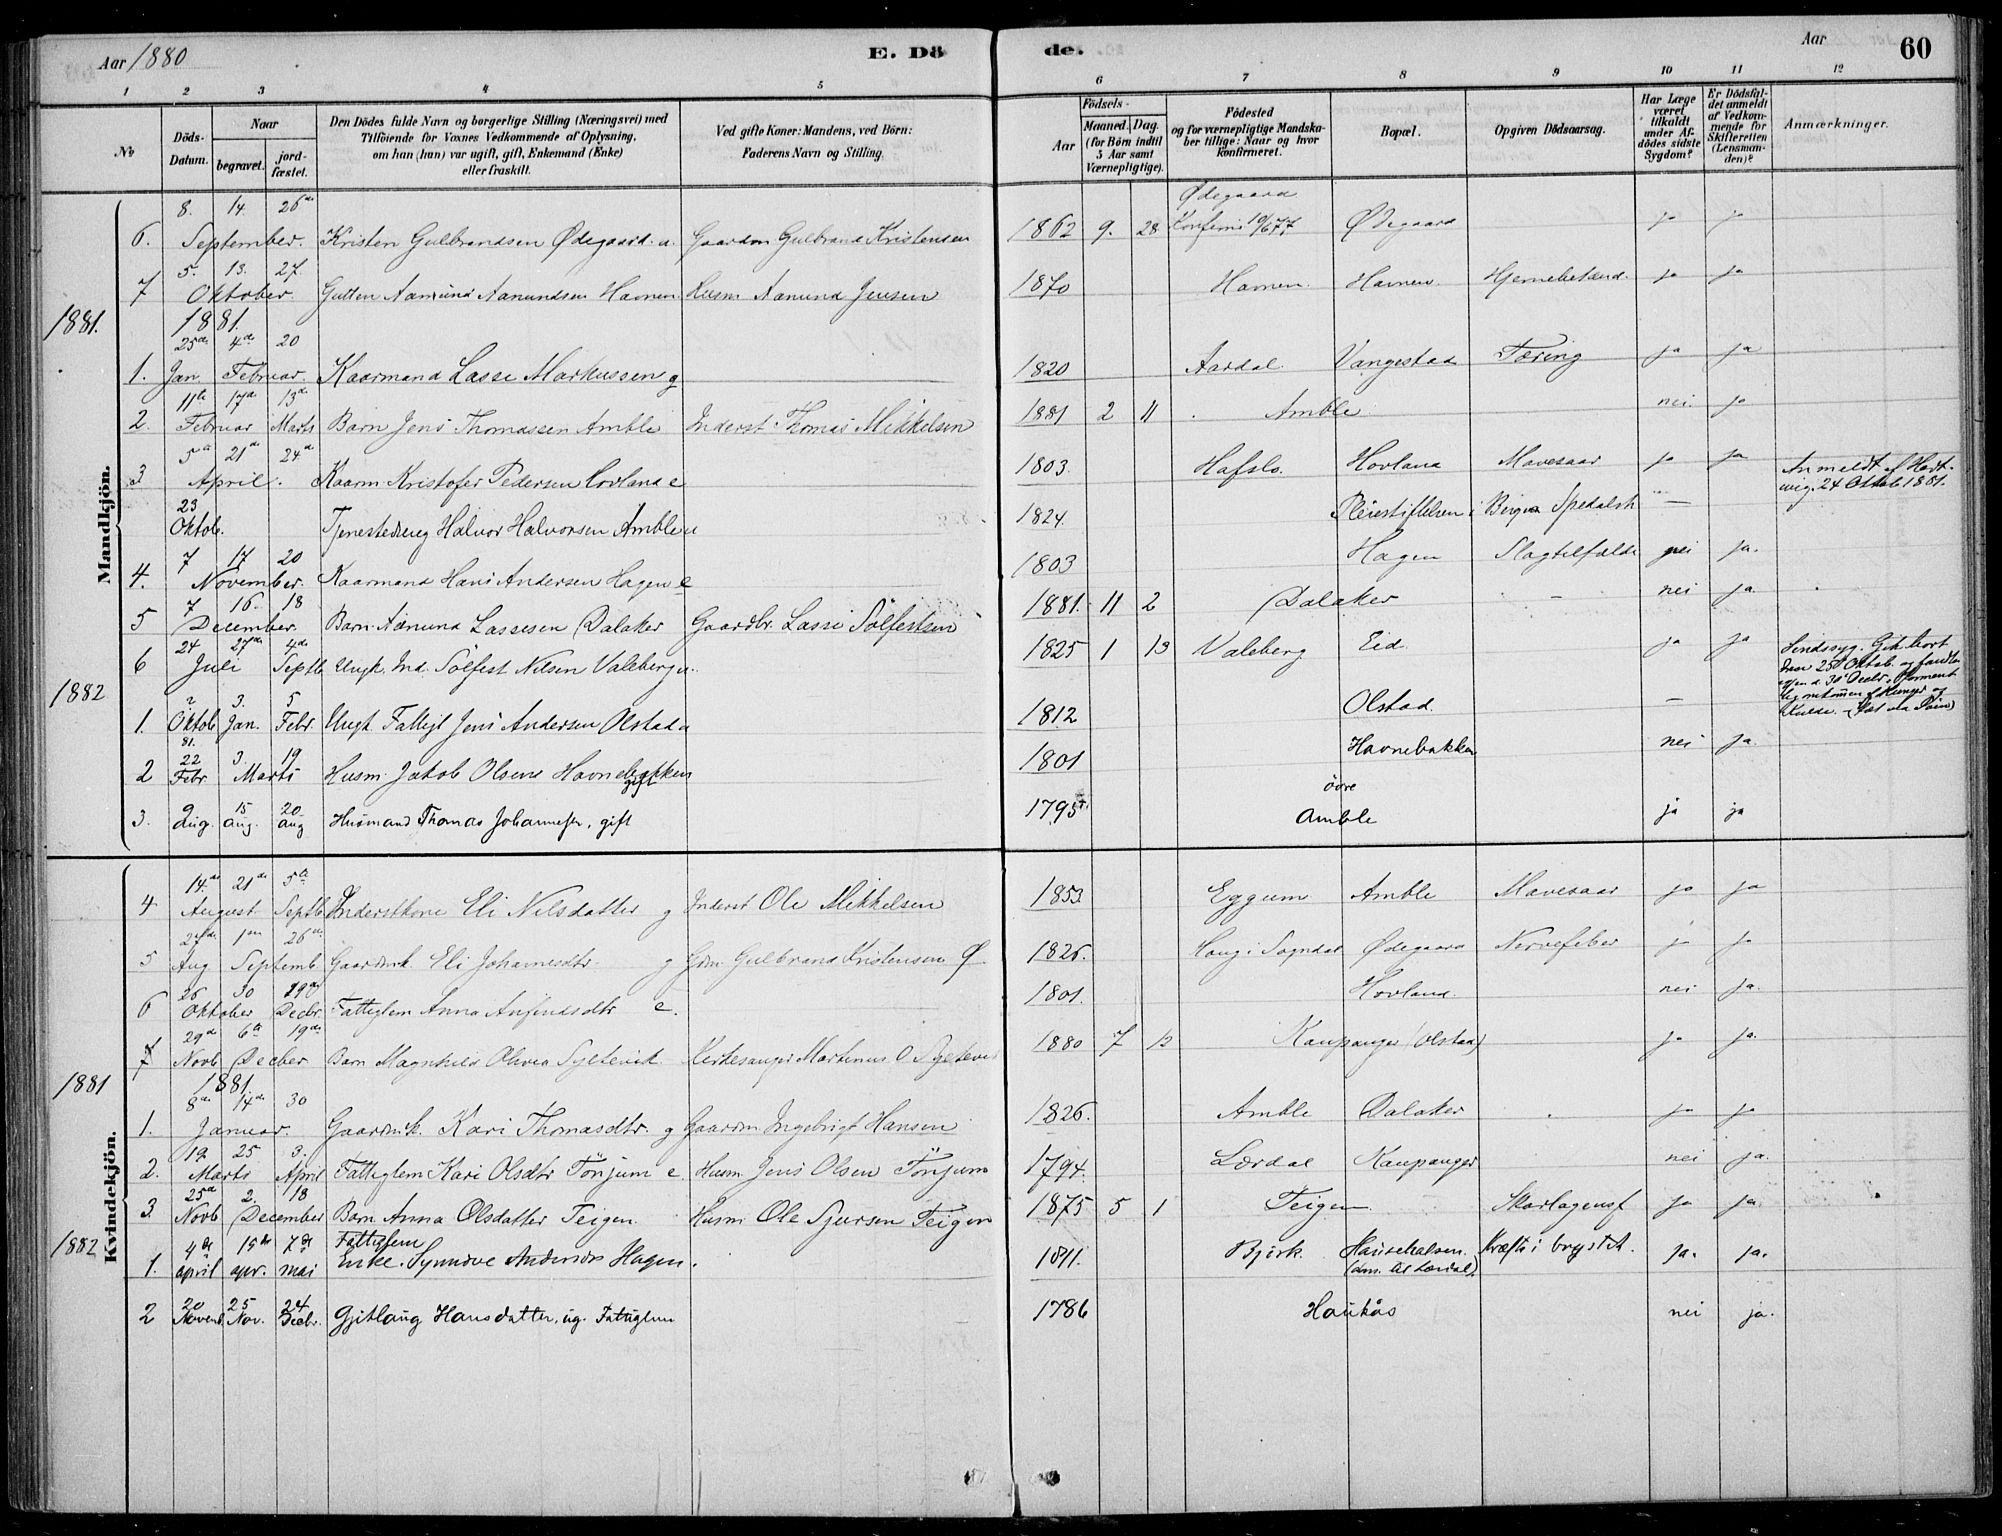 Aar 1880 E. Dö de. Aar 60
1 2 3 4 5 6 7 8 9 10 11 12
No Döds-Datum. Naar begravet. jord-fæstet. Den Dödes fulde Navn og borgerlige Stilling (Næringsvei) med Tilföiende for Voxnes Vedkommende af Oplysning, om han (hun) var ugift, gift, Enkemand (Enke) eller fraskilt. Ved gifte Koner: Mandens, ved Börn: Faderens Navn og Stilling. Födsels- Aar Maaned. Dag. (for Börn indtil 5 Aar samt Værnepligtige). Födested og for værnepligtige Mandskaber tillige: Naar og hvor konfirmeret. Bopæl. Opgiven Dödsaarsag. Har Læge været tilkaldt under Afdödes sidste Sygdom? Er Dödsfaldet anmeldt af Vedkommende for Skifteretten (Lensmanden)? Anmærkninger.
Mandkjön.
6. 8. 14. 26de September. Kristen Gulbrandsen Ødegaard. u. Gaardm Gulbrand Kristensen 1862 9. 28 Ødegaard Konfirm 10/6 77 Ødegaard ja ja
7 5. 13. 27. Oktober Gutten Aamund Aamundsen Havnen. Husm Aamund Jensen 1870 Havnen Havnen Hjernebetænd. ja ja
1881. 1881.
1. 25de 4de 20 Jan Februar. Kaarmand Lasse Markussen g 1820 Aardal Vangestad Tæring ja ja
2. 11te 17de 13de Februar Marts Barn Jens Thomassen Amble Inderst Thomas Mikkelsen 1881 2 11 Amble nei ja
3 5te 21de 24de April. Kaarm Kristofer Pedersen Hovland e 1803. Hafslo. Hovland Mavesaar ja ja
23 Oktob. Tjenestedreng Halvor Halvorsen Amble u 1824. Pleiestiftelsen i Bergen Spedalsk — Anmeldt f 24 Oktob 1881.
4. 7 17 20 November. Kaarmand Hans Andersen Hagen e 1803 Hagen Slagtilfælde nei ja.
5 7 16. 18 December. Barn Aamund Lassesen Dalaker Gaardbr. Lasse Sölfestsen 1881. 11 2 Dalaker - nei ja
6 24 27de 4de Juli Septb Ungk. Ind. Sölfest Nilsen Valeberg u. 1825 1 13 Valeberg Eid ja ja
1882
1. 2 3. 5 Oktob 81. Jan. Febr. Ungk. Fattigl Jens Andersen Olstad u 1812 Olstad. — — Sindssyg. Gik bort hen 2 Oktob. og fandtes igjen d. 30 Decbr. formentlig omkommen af Hunger og Kulde.
2 22 3. 19 Febr Marts Husm Jakob Olsen Havnebakken gift 1801 Havnebakken nei ja.
3. 9 15 20 Aug. Aug. Aug Husmand Thomas Johannesen, gift 1795. övre Amble ja ja
Kvindekjön.
4 14de 21de 5te August Septb Inderstkone Eli Nilsdatter g Inderst Ole Mikkelsen 1853. Eggum Amble Mavesaar ja ja
5 27de 1ste 26de Aug Septemb. Gaardmk. Eli Johannesdtr g Gdm. Gulbrand Kristensen Ø 1826. Haug i Sogndal Ødegaard Nervefeber ja ja
6 26 30 29de Oktober Decbr. Fattiglem Anna Anfindsdtr e. 1801. Hovland. nei ja.
7 29de 6te 19de Novb December Barn Magnhild Olivia Syltevik Kirkesanger Martinus O Syltevik 1880 7 12 Kaupanger (Olstad) ja ja.
1881 1881.
1. 8de 14de 30 Januar. Gaardmk. Kari Thomasdtr. g Gaardm Ingebrigt Hansen 1826. Amble Dalaker ja ja
2. 19. 25 3. Marts April Fattiglem Kari Olsdtr Tönjum e Husm Jens Olsen Tönjum 1794. Lærdal Kaupanger nei ja.
3. 25de 2. 18 Novb December Barn Anna Olsdatter Teigen Husm Ole Sjursen Teigen 1875 5 1 Teigen Skarlagensf ja ja.
1882
1. 4de 15de 7de april apr. mai Fattiglem Enke. Synnöve Andersdtr Hagen. 1811. Bjørk Hausehalsen. (dm. til Lærdal). Kræft i brystet. ja. ja.
2 20 25 24 Novemb Nov. Decbr. Gjitlaug Hansdatter, ug. Fattiglem 1786 Haukås nei ja.